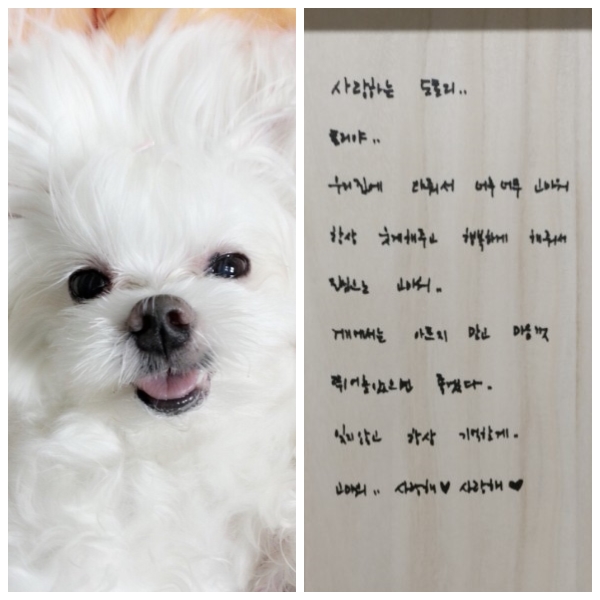 사랑하는 도리..
리야..
우리집에 와줘서 너무너무 고마워
항상 웃게해주고 행복하게 해줘서
진심으로 고마워..
거기에서는 아프지 말고 마음껏
뛰어놀았으면 좋겠다.
잊지않고 항상 기억할게.
고마워.. 사랑해♥ 사랑해♥